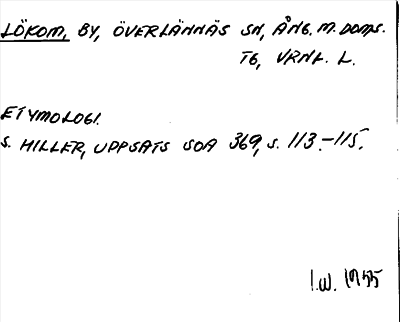 LÖKOM, BY, ÖVERLÄNNÄS SN, ÅNG. M. DOMS.
TG, VRNL. L.
ETYMOLOGI.
S. HILLER, UPPSATS SOA 369, S. 113-115.
I.W. 1955